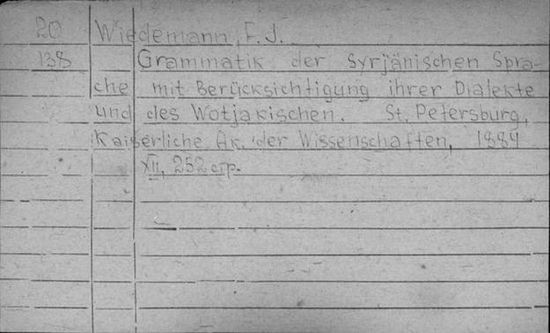 20 Wiedemann, F. J.
138 Grammatik der Syrjänischen Spra-
che mit Berücksichtigung ihrer Dialekte
und des Wotjakischen. St. Petersburg,
Kaiserliche Ak. der Wissenschaften, 1884
XII, 252 стр.